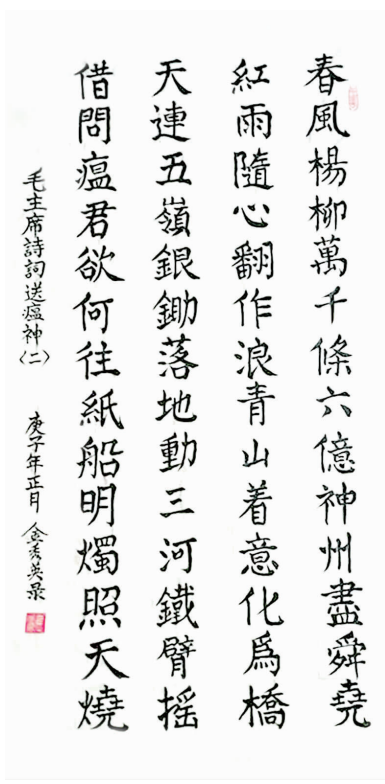 春風楊柳萬千條六億神州盡舜堯
紅雨隨心翻作浪青山着意化爲橋
天連五嶺銀鋤落地動三河鐵臂摇
借問瘟君欲何往紙船明燭照天燒
毛主席詩詞送瘟神〈二〉 庚子年正月 金秀英录